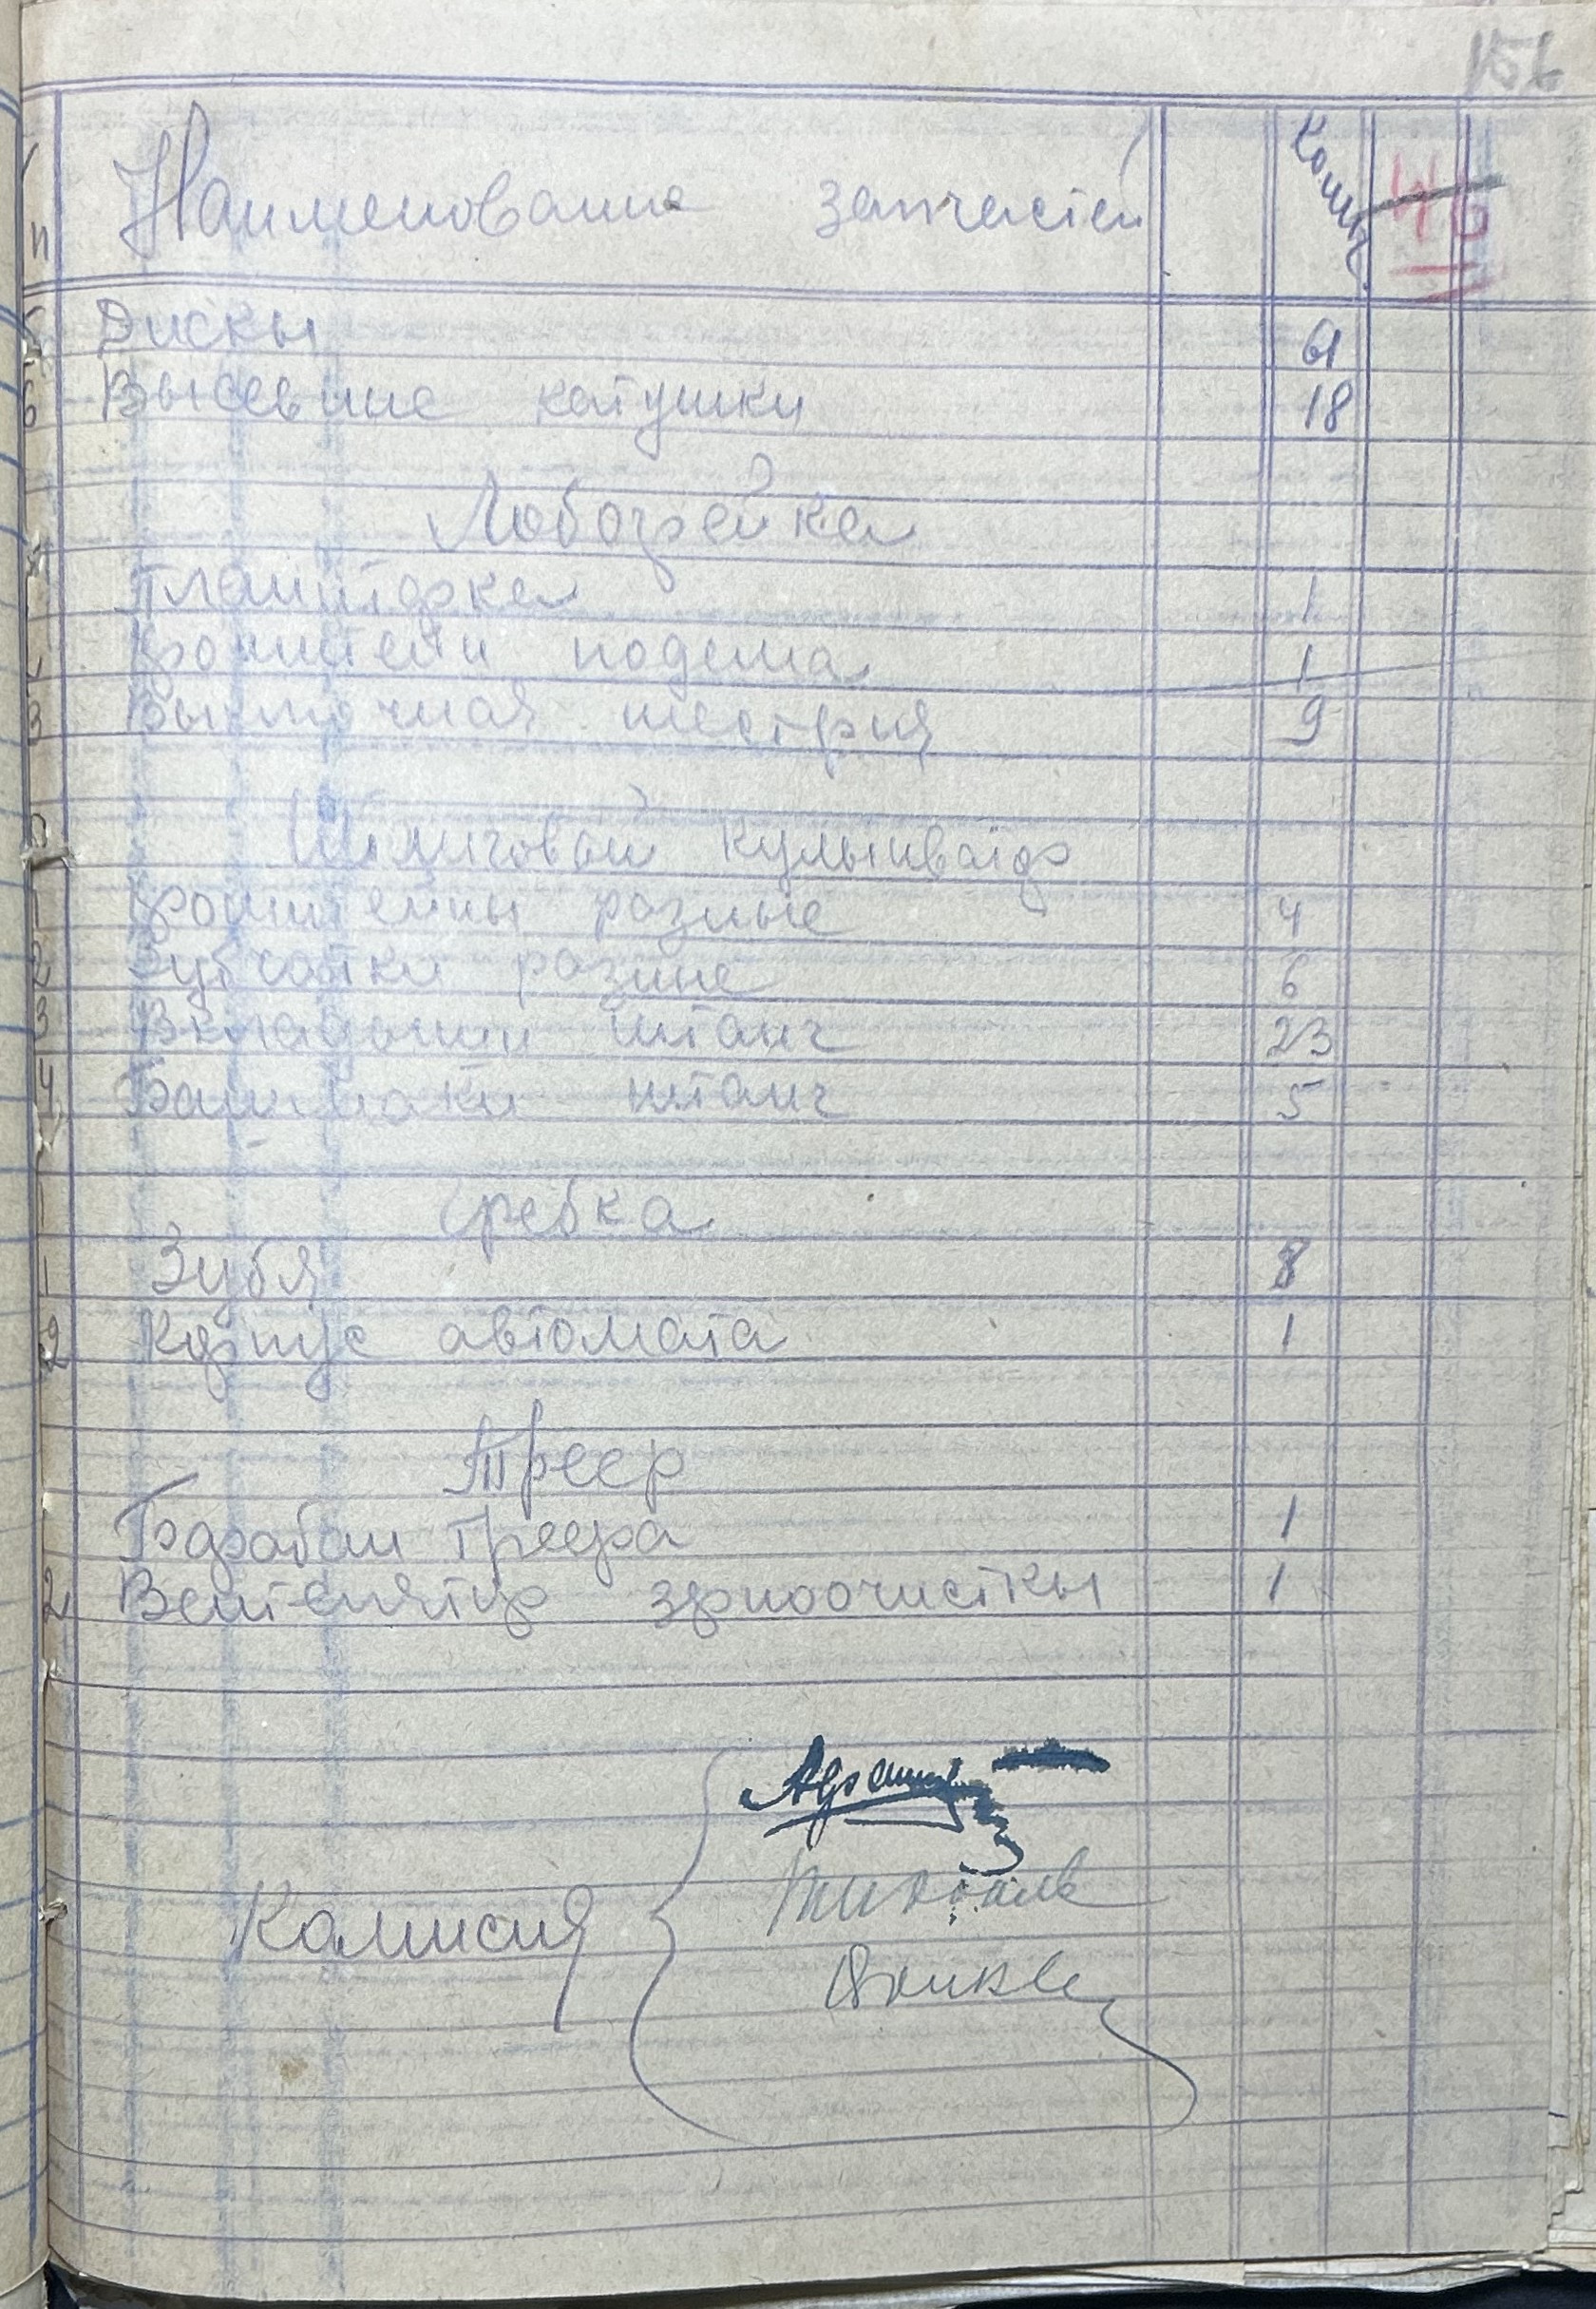 156
Наименование запчастей Колич
46
5 Диски 61
6 Высевние катушки 18
Лобогрейка
Планшорка 1
кронштейн подема 1
3 Выключная шестрня 9
Штанговой культиватор
1 Кронштейны разные 4
2 Зубчатки разние 6
3 Вкладыши штанг 23
4 Башмаки штанг 5
Гребка
1 Зубя 8
2 Корпус автомата 1
Треер
Барабан треера 1
2 Вентелятор зрноочисткы 1
Комисия